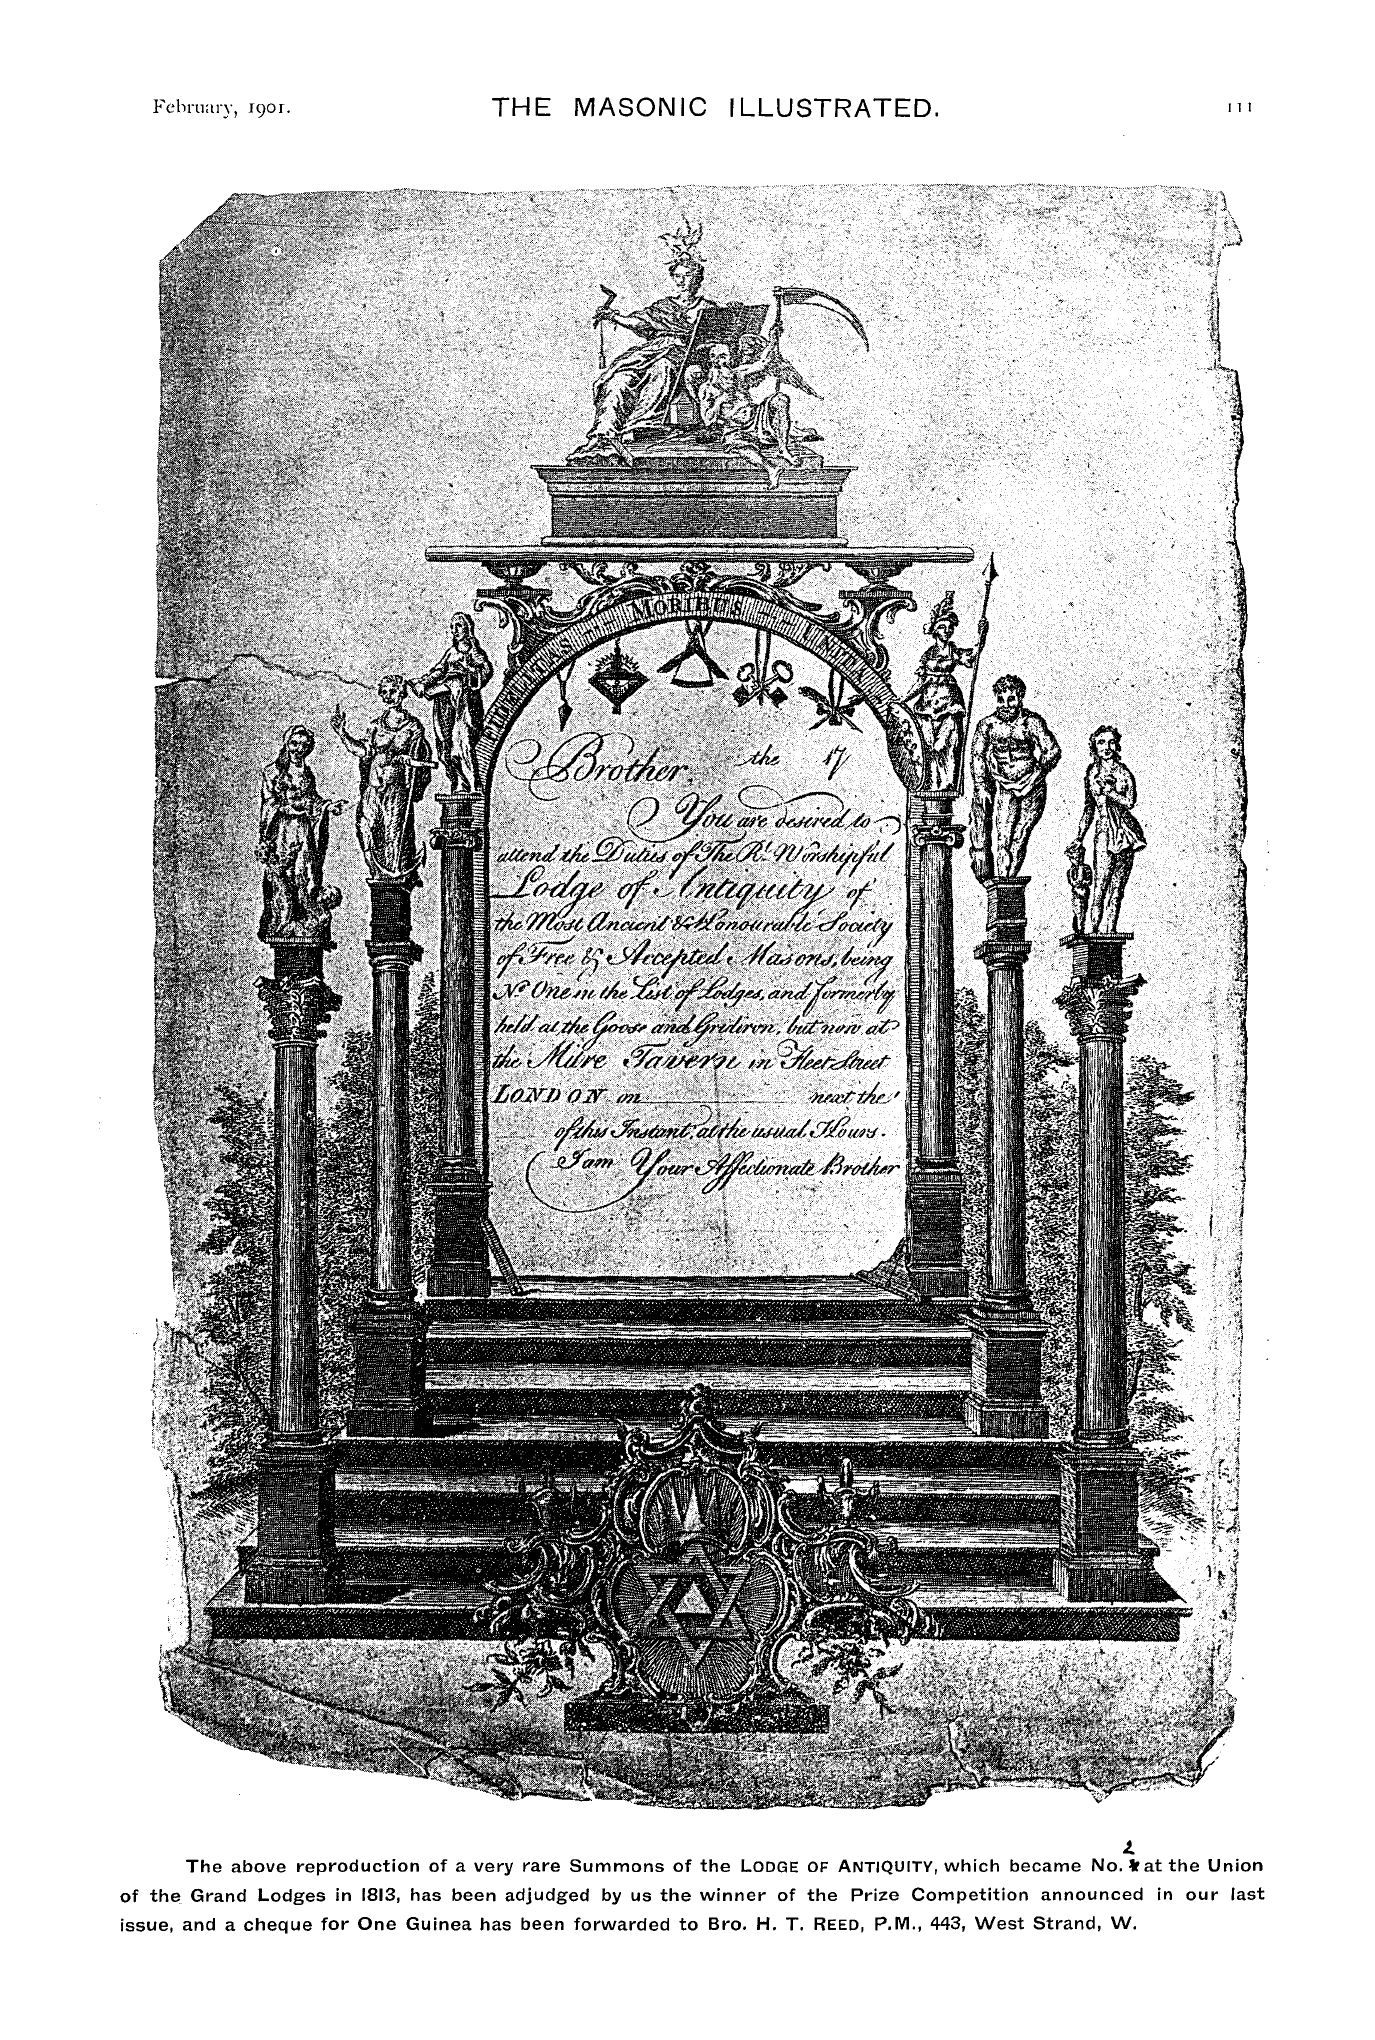 February, 1901. THE MASONIC ILLUSTRATED. 111
MORIBUS
Brother, the 17
You are desired to
attend the Duties of The Rt. Worshipful
Lodge of Antiquity of
the Most Ancient & Honourable Society
of Free & Accepted Masons, being
No. One in the List of Lodges, and formerly
held at the Goose and Gridiron, but now at
the Mitre Tavern in Fleet Street
LONDON on next the
of this Instant, at the usual Hours.
I am Your Affectionate Brother
2
The above reproduction of a very rare Summons of the LODGE OF ANTIQUITY, which became No. at the Union
of the Grand Lodges in 1813, has been adjudged by us the winner of the Prize Competition announced in our last
issue, and a cheque for One Guinea has been forwarded to Bro. H. T. REED, P.M., 443, West Strand, W.